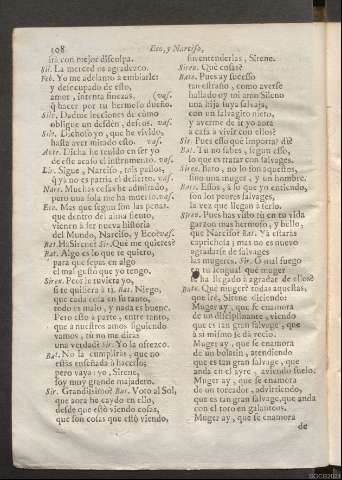 108
Eco, y Narciso,
irà con mejor disculpa.
Sil. La merced os agradezco.
Feb. Yo me adelanto à embiarle:
y desocupado de esto,
amor, intenta finezas, (vase.
q̃ hacer por tu hermoso dueño.
Silv. Dadme lecciones de cómo
obligue un desdèn, deseos. vase.
Sile. Dichoso yo, que he vivido,
hasta aver mirado esto. vase.
Ante. Dicha he tenido en ser yo
de este acaso el instrumento. vase.
Lir. Sigue, Narciso, mis passos,
q̃ yà no es patria el desierto. vase.
Narc. Muchas cosas he admirado,
pero una sola me ha muerto. vase.
Eco. Mas que segun son las penas,
que dentro del alma siento,
vienen à ser nueva historia
del Mundo, Narciso, y Eco? vase.
Bat. Ha Sirene? Sir. Què me quieres?
Bat. Algo es lo que te quiero,
para que sepas en algo
el mal gesto que yo tengo.
Siren. Pues se tuviera yo,
si te quisiera à ti. Bat. Niego,
que cada cosa en su tanto,
todo es malo, y nada es bueno.
Pero esto à parte, entre tanto,
que à nuestros amos siguiendo
vamos, tù no me diràs
una verdad? Sir. Yo la ofrezco.
Bat. No la cumpliràs, que no
estàs enseñada à hacerlo;
pero vaya: yo, Sirene,
soy muy grande majadero.
Sir. Grandissimo? Bat. Voto al Sol,
que aora he caydo en ello,
desde que estò viendo cosas,
que son cosas que estò viendo,
sin entenderlas, Sirene.
Siren. Què cosas?
Bato. Pues ay sucesso
tan estraño, como averse
hallado oy mi amo Sileno
una hija suya salvaja,
con un salvagito nieto,
y averme de ir yo aora
à casa à vivir con ellos?
Sir. Pues esso què importa? di?
Bat. Tù no sabes, segun esso,
lo que es tratar con salvages.
Siren. Bato, no lo son aquestos,
sino una muger, y un hombre.
Bato. Essos, à lo que yo entiendo,
son los peores salvajes,
la vez que llegan à serlo.
Siren. Pues has visto tù en tu vida
garzon mas hermoso, y bello,
que Narciso? Bat. Yà estaràs
caprichosa; mas no es nuevo
agradarse de salvages
las mugeres. Sir. O mal fuego
tu lengua! què muger
ha llegado à agradar de ellos?
Bato. Què muger? todas aquestas,
que irè, Sirene diciendo:
Muger ay, que se enamora
de un disciplinante, viendo
que es tan gran salvage, que
à sì mismo se dà recio.
Muger ay, que se enamora
de un bolatin, atendiendo
que es tan gran salvage, que
anda en el ayre, aviendo suelo.
Muger ay, que se enamora
de un toreador, advirtiendo,
que es tan gran salvage, que anda
con el toro en galanteos.
Muger ay, que se enamora
de